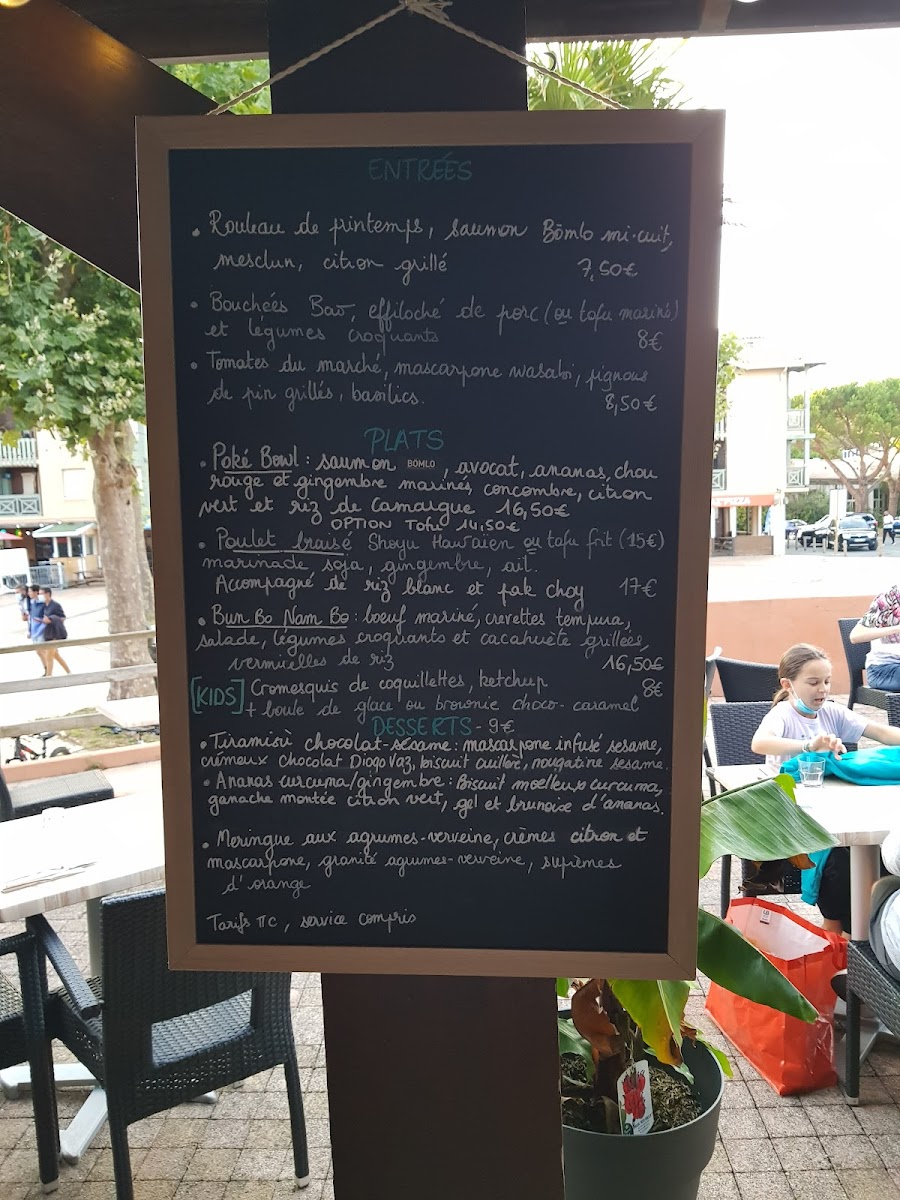 ENTRÉES
• Rouleau de printemps, saumon Bömlo mi-cuit,
mesclun, citron grillé 7,50€
• Bouchées Bao, effiloché de porc (ou tofu mariné)
et légumes croquants 8€
• Tomates du marché, mascarpone wasabi, pignons
de pin grillés, basilics. 8,50€
PLATS
• Poké Bowl : saumon BÖMLO, avocat, ananas, chou
rouge et gingembre marinés, concombre, citron
vert et riz de Camargue 16,50€
OPTION Tofu 14,50€
• Poulet braisé Shoyu Hawaïen ou tofu frit (15€)
marinade soja, gingembre, ail.
Accompagné de riz blanc et pak choy 17€
• Bun Bo Nam Bo : boeuf mariné, crevettes tempura,
salade, légumes croquants et cacahuète grillées,
vermicelles de riz 16,50€
[KIDS] Cromesquis de coquillettes, ketchup 8€
+ boule de glace ou brownie choco-caramel
DESSERTS - 9€
• Tiramisù chocolat-sésame : mascarpone infusé sesame,
crémeux chocolat Diogo Vaz, biscuit cuillère, nougatine sesame.
• Ananas curcuma/gingembre : Biscuit moelleux curcuma,
ganache montée citron vert, gel et brunoise d'ananas.
• Meringue aux agrumes-verveine, crèmes citron et
mascarpone, granité agrumes-verveine, suprêmes
d'orange
Tarifs TTC, service compris